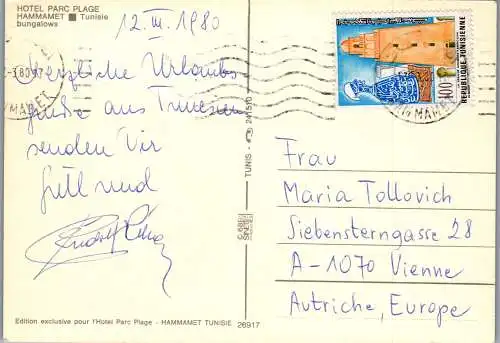 HOTEL PARC PLAGE
HAMMAMET ■ Tunisie
bungalows
12. III. 1980
Herzliche Urlaubs
grüße aus Tunesien
senden Dir
und
REPUBLIQUE TUNISIENNE
100
HAMMAMET
TUNIS - 241510
Frau
Maria Tollovich
Siebensterngasse 28
A-1070 Vienne
Autriche, Europe
Edition exclusive pour l'Hotel Parc Plage - HAMMAMET TUNISIE 26917